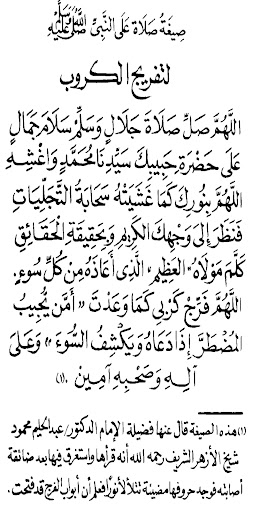 صِيغَة صَلَاة عَلَى النَّبِىِّ ﷺ
لتفريج الكروب
اللَّهُمَّ صَلِّ صَلَاةَ جَلَالٍ وَسَلِّمْ سَلَامَ جَمَالٍ
عَلَى حَضْرَةِ حَبِيبِكَ سَيِّدِنَا مُحَمَّدٍ وَاغْشِهِ
اللَّهُمَّ بِنُورِكَ كَمَا غَشِيَتْهُ سَحَابَةُ التَّجَلِّيَاتِ
فَنَظَرَ إِلَى وَجْهِكَ الْكَرِيمِ وَبِحَقِيقَةِ الْحَقَائِقِ
كَلَّمَ مَوْلَاهُ "الْعَظِيمَ" الَّذِى أَعَاذَهُ مِنْ كُلِّ سُوءٍ.
اللَّهُمَّ فَرِّجْ كَرْبِى كَمَا وَعَدْتَ « أَمَّن يُجِيبُ
الْمُضْطَرَّ إِذَا دَعَاهُ وَيَكْشِفُ السُّوءَ » وَعَلَى
آلِهِ وَصَحْبِهِ آمِينَ (١).
(١) هذه الصيغة قال عنها فضيلة الإمام الدكتور/عبدالحليم محمود
شيخ الأزهر الشريف رحمه الله أنه قرأها واستغرق فيها بعد ضائقة
أصابته فوجد حروفها مضيئة تتلألأ نورًا فعلم أن أبواب الفرج قد فتحت.